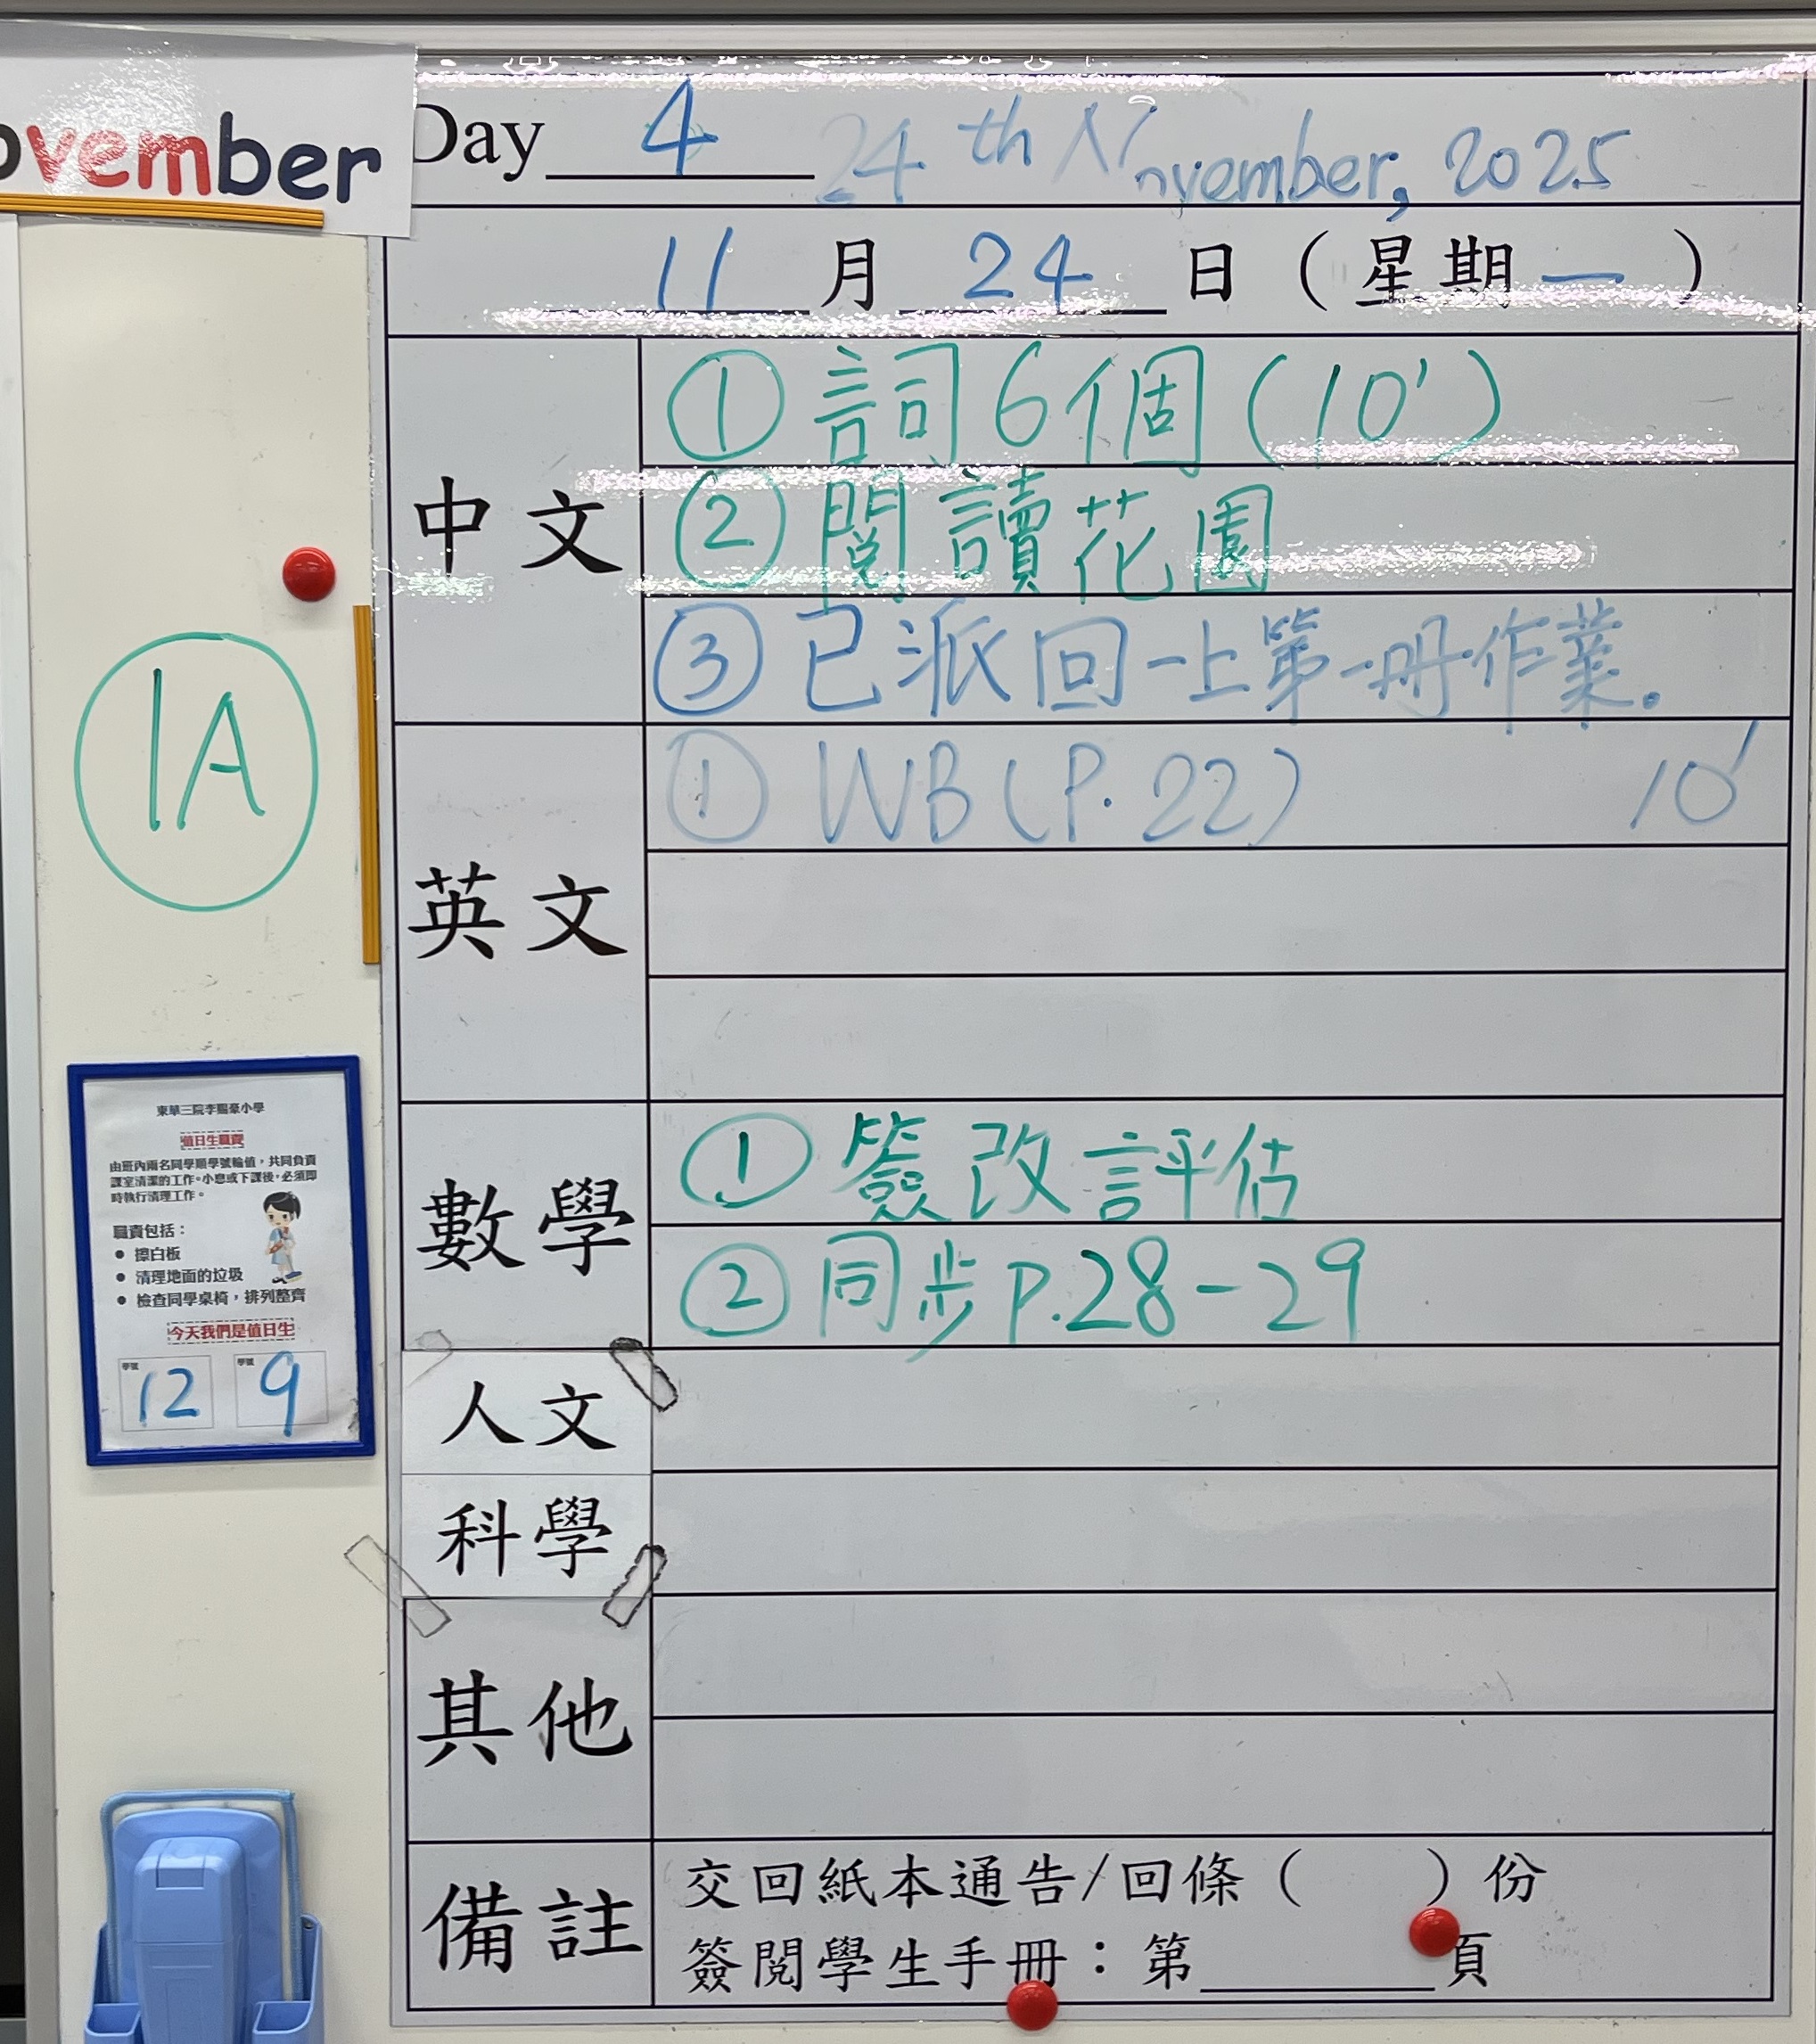 ovember
Day 4 24th November, 2025
11 月 24 日 （星期一）
中文
① 詞6個 (10')
② 閱讀花園
③ 已派回一上第一冊作業。
英文
① WB (P.22) 10'
數學
① 簽改評估
② 同步 p.28-29
人文
科學
其他
備註
交回紙本通告/回條（ ）份
簽閱學生手冊：第______頁
1A
東華三院李賜豪小學
值日生職責
由班內兩名同學順學號輪值，共同負責
課室清潔的工作。小息或下課後，必須即
時執行清理工作。
職責包括：
● 擦白板
● 清理地面的垃圾
● 檢查同學桌椅，排列整齊
今天我們是值日生
學號 12 學號 9